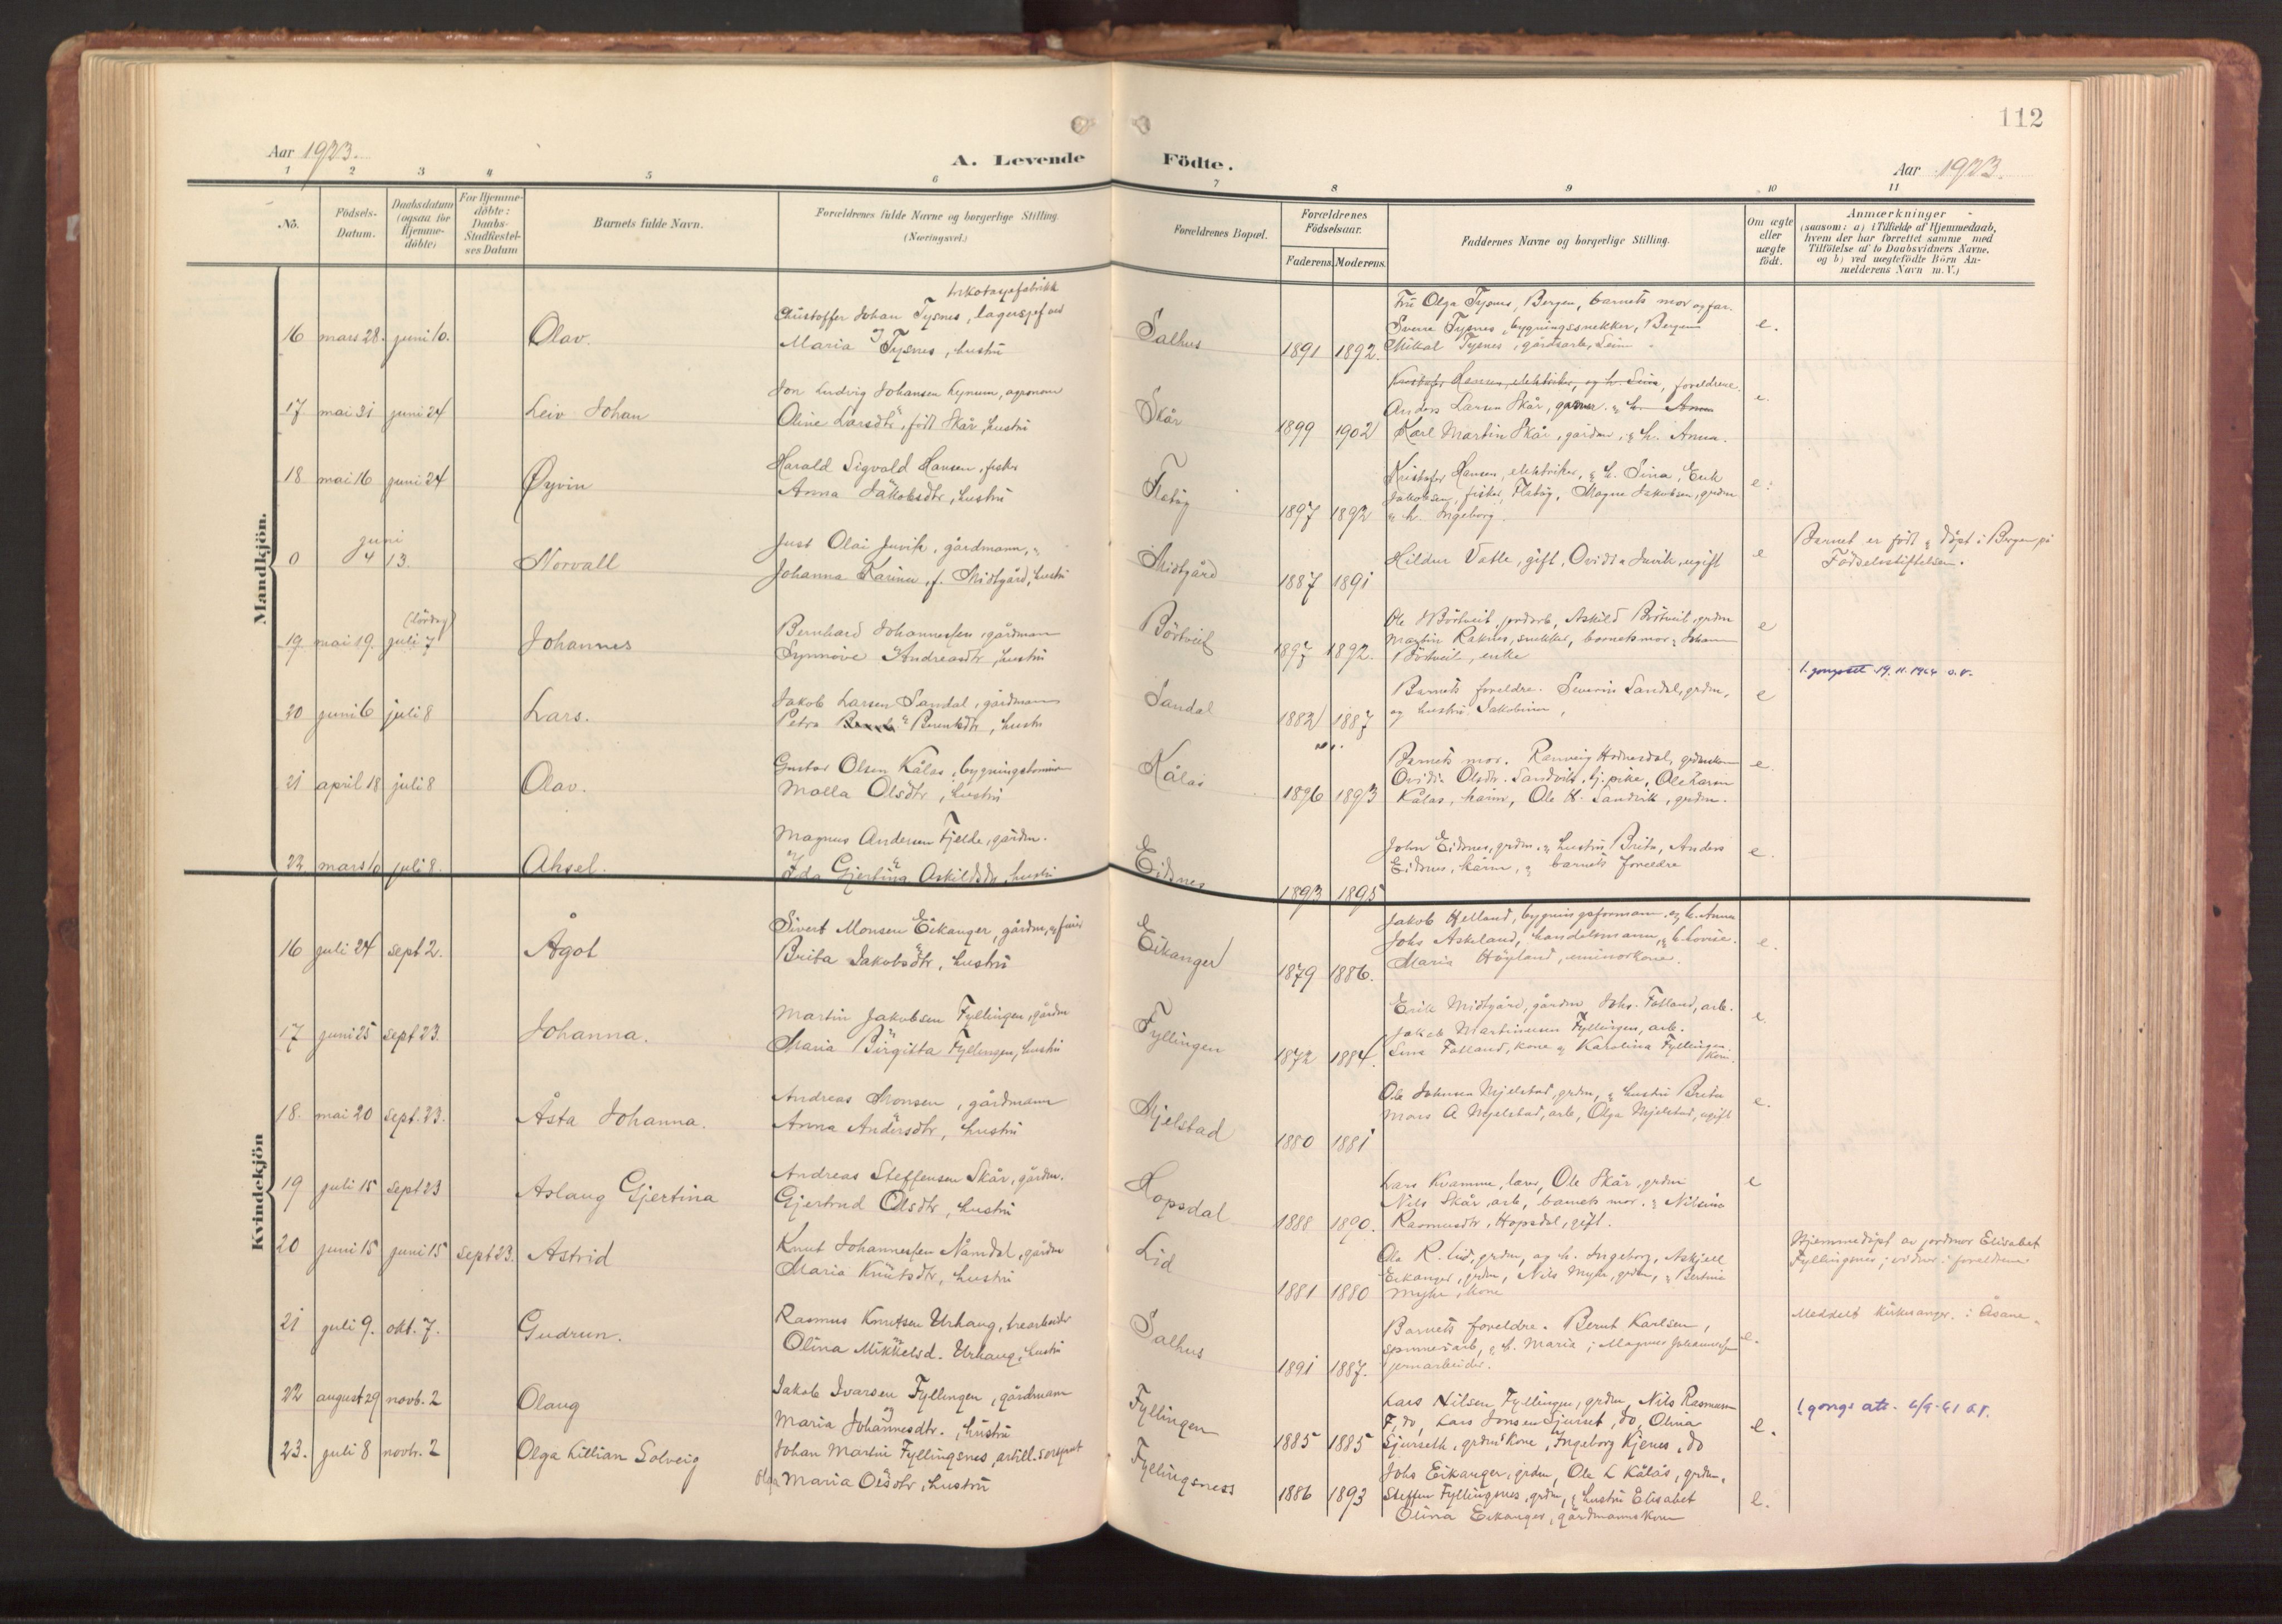 112
Aar 1923.
A. Levende Födte.
Aar 1923.
1 2 3 4 5 6 7 8 9 10 11
No.
Födsels-
Datum.
Daabsdatum
(ogsaa for
Hjemme-
döbte)
For Hjemme-
döbte:
Daabs-
Stadfæstel-
ses Datum
Barnets fulde Navn.
Forældrenes fulde Navne og borgerlige Stilling.
(Næringsvei.)
Forældrenes Bopæl.
Forældrenes
Födselsaar.
Faderens. Moderens.
Faddernes Navne og borgerlige Stilling.
Om ægte
eller
uægte
födt.
Anmærkninger
(saasom: a) i Tilfælde af Hjemmedaab,
hvem der har forrettet samme med
Tilföielse af to Daabsvidners Navne.
og b) ved uægtefödte Börn An-
melderens Navn m.V.)
Mandkjön.
16 mars 28. juni 10. Olav.
Christoffer Johan Tysnes, lagersjef ved
Maria Tysnes, hustru
Salhus 1891 1892.
Fru Olga Tysnes, Bergen, barnets mor og far.
Sverre Tysnes, bygningssnekker, Bergen
Mikal Tysnes, gårdsarb, Seim
e.
17 mai 31 juni 24 Leiv Johan
Jon Ludvig Johansen Kynum, agronom
Oline Larsdtr, födt Skår, hustru
Skår 1899 1902
Kristofer Hansen, elektriker, og h. Sina, foreldrene.
Anders Larsen Skår, h. Anna
Karl Martin Skår, gårdm, & h. Anna.
e.
18 mai 16 juni 24 Øyvin
Harald Sigvald Hansen, fisker
Anna Jakobsdtr, hustru
Fletöy 1897 1892
Kristofer Hansen, elektriker, & h. Sina, Erik
Jakobsen, fisker, Flatöy, Magne Jakobsen, grdm
& h. Ingeborg.
e.
0 juni 4 13. Norvall
Just Olai Juvik, gårdmann, &
Johanna Karina, f. Midtgård, hustru
Midtgård 1887 1891
Hildur Vatle, gift, Ovidia Juvik, ugift
e
Barnet er födt & döpt i Bergen på
Födselsstiftelsen.
19. mai 19. (lördag) juli 7 Johannes
Bernhard Johannessen, gårdman
Synnöve Andreasdtr, hustru
Börtveit 1897 1892.
Ole Börtveit, jordarb, Askild Börtveit, grdm
Martin Raknes, snekker, barnets mor, Johanna
Börtveit, enke
e
20 juni 6 juli 8 Lars.
Jakob Larsen Sandal, gårdmann
Petra Berentsdtr, hustru
Sandal 1882 1887
Barnets foreldre. Severin Sandal, grdm,
og hustru Jakobina,
e
19.11.1964
21 april 18 juli 8 Olav.
Gustav Olsen Kålås, bygningstömmer
Malla Olsdtr, hustru
Kålås 1896 1893
Barnets mor. Ranveig Hodnesdal, grdmkone
Ovidia Olsdtr. Sandvik, tj.pike, Ole Larsen
Kålås, kårm, Ole H. Sandvik, grdm.
e.
22 mars 10 juli 8. Aksel.
Magnus Andersen Fjelde, gårdm.
og
Ida Gjertina Askildsdtr, hustru
Eidsnes 1893 1895
John Eidsnes, grdm. & hustru Brita, Anders
Eidsnes, kårm, & barnets foreldre
e.
Kvindekjön
16 juli 24 sept 2. Ågot
Sivert Monsen Eikanger, gårdm,
Brita Jakobsdtr, hustru
Eikanger 1879 1886.
Jakob Helland, bygningsformann og h. Anna
Johs Askeland, handelsmann, & h. Lovise.
Maria Höyland, kone.
e.
17 juni 25 sept 23. Johanna.
Martin Jakobsen Fyllingen, gårdm
Maria Birgitta Fyllingen, hustru
Fyllingen 1872 1884.
Erik Midtgård, gårdm Johs. Totland, arb.
Jakob Martinussen Fyllingen, arb.
Sina Totland, kone & Karolina Fyllingen,
kone
e.
18. mai 20 sept. 23. Åsta Johanna.
Andreas Monsen, gårdmann
Anna Andersdtr, hustru
Mjelstad 1880 1881
Ole Johnsen Mjelstad, grdm, & hustru Brita
Mons A Mjelstad, arb, Olga Mjelstad, ugift
e.
19 juli 15 sept 23 Aslaug Gjertina
Andreas Steffensen Skår, gårdm.
Gjertrud Olsdtr, hustru
Hopsdal 1888 1890.
Lars Kvamme, lærer, Ole Skår, grdm
Nils Skår, arb, barnets mor. & Nilsina
Rasmusdtr, Hopsdal, gift.
e
20 juni 15 juni 15 sept 23. Astrid
Knut Johannessen Nåmdal, gårdm
Maria Knutsdtr, hustru
Lid 1881 1880
Ole R. Lid, grdm, og h. Ingeborg, Askjell
Eikanger, grdm, Nils Myhr, grdm, & Bertina
Myhr, kone
Hjemmedöpt av jordmor Elisabet
Fyllingsnes; vidner: foreldrene
21 juli 9. okt. 7. Gudrun.
Rasmus Knutsen Urhaug, trearbeider
Olina Mikkelsd. Urhaug, hustru
Salhus 1891 1887.
Barnets foreldre. Bernt Karlsen,
spinneriarb, & h. Maria; Magnus Johannessen
jernarbeider.
e.
Meddelt kirkesanger i Åsane.
22 august 29 novb. 2 Olaug
Jakob Ivarsen Fyllingen, gårdmann
og
Maria Johannesdtr., hustru
Fyllingen 1885 1885
Lars Nilsen Fyllingen, grdm, Nils Rasmussen
F, do, Lars Jonsen Sjurset, do, Olina
Sjurseth, grdm's kone, Ingeborg Kjenes, do
e.
1. gongs att.
23. juli 8 novb. 2 Olga Lillian Solveig
Johan Martin Fyllingsnes, artill. sersjant
Olga Maria Olsdtr, hustru
Fyllingsness 1886 1893
Johs Eikanger, grdm, Ole L Kålås, grdm,
Steffen Fyllingsnes, grdm, & hustru Elisabet
Olina Eikanger, gårdmannskone
e.